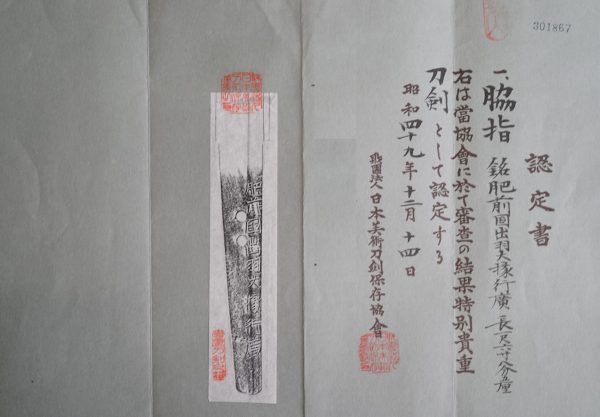 301867
認定書
一、脇指 銘肥前国出羽大掾行廣 長
右は當協會に於て審査の結果特別貴重
刀劍として認定する
昭和四十九年十二月十四日
財團法人日本美術刀劍保存協會
肥前国出羽大掾行廣